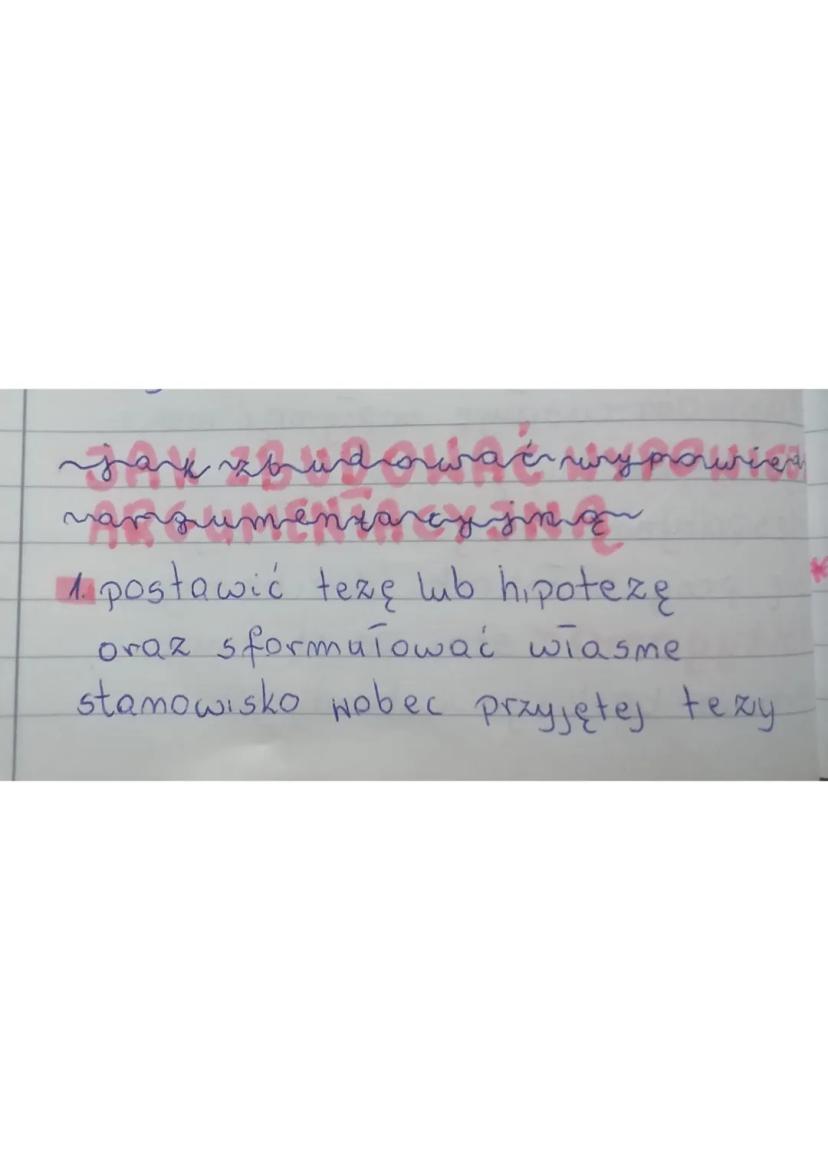 jak zbudować wypowiedź
argumentacyjną
1. postawić tezę lub hipotezę
oraz sformułować własne
stanowisko wobec przyjętej tezy